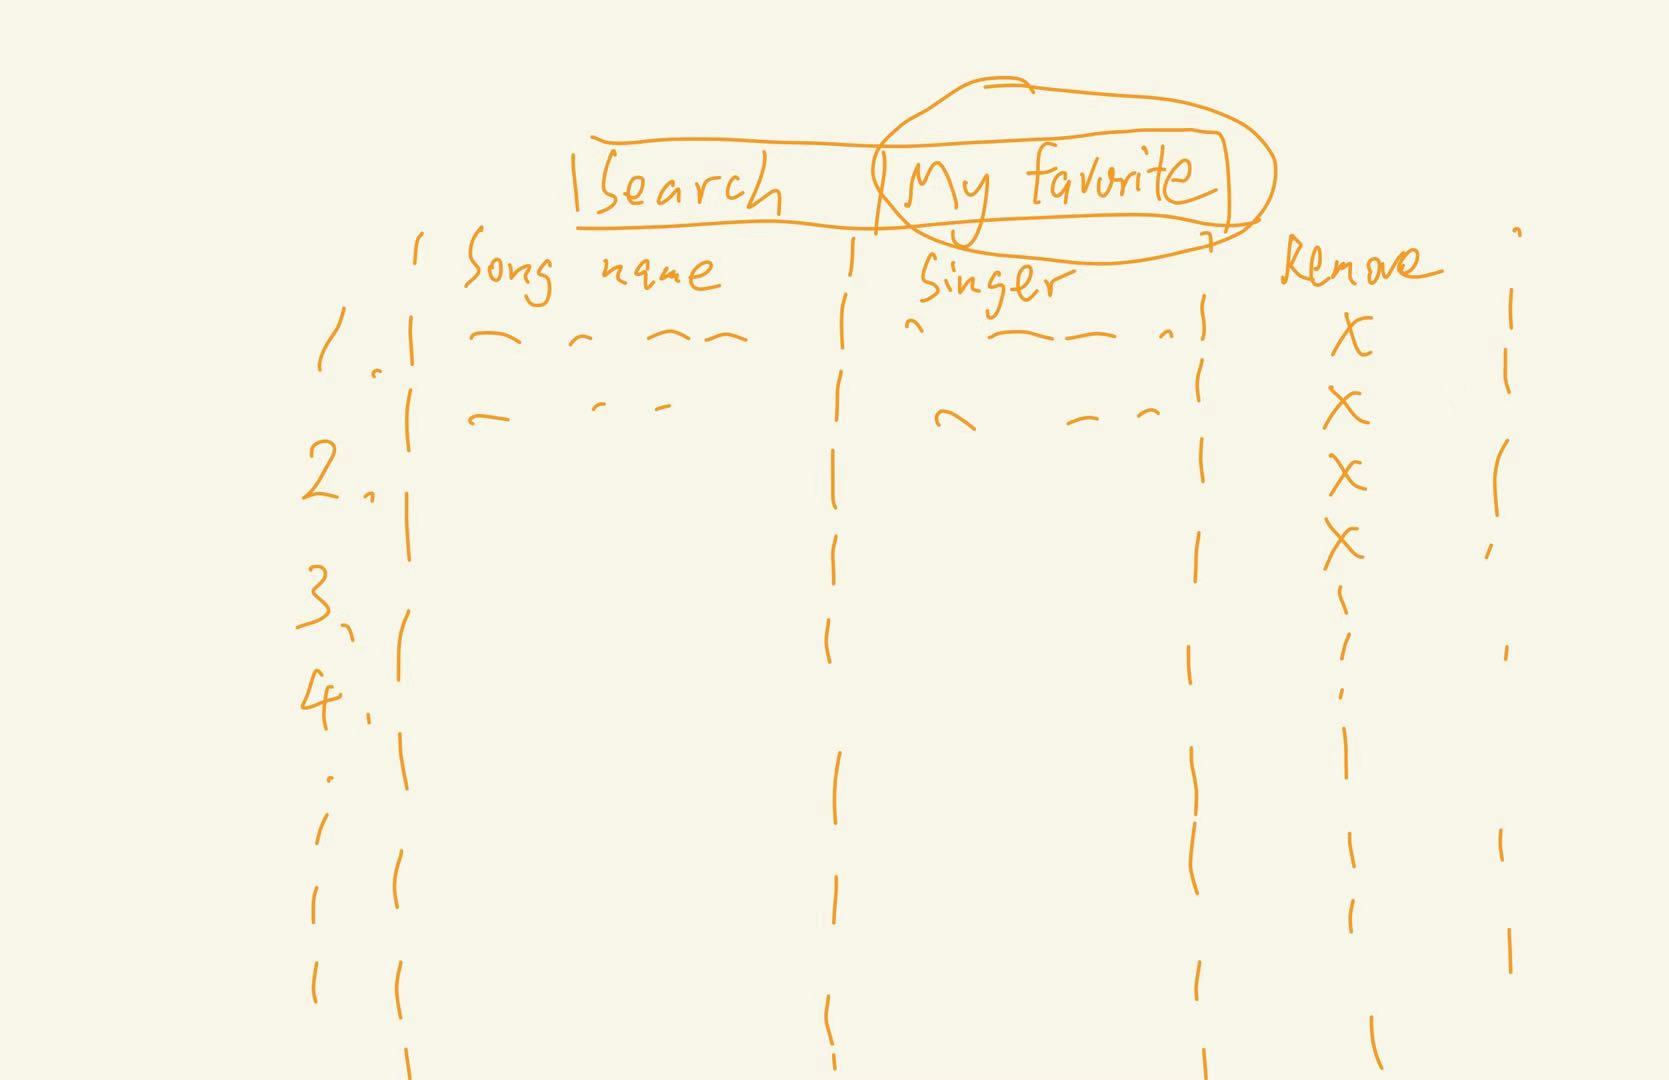 Search My favorite
Song name Singer Remove
1. X
X
2. X
X
3.
4.